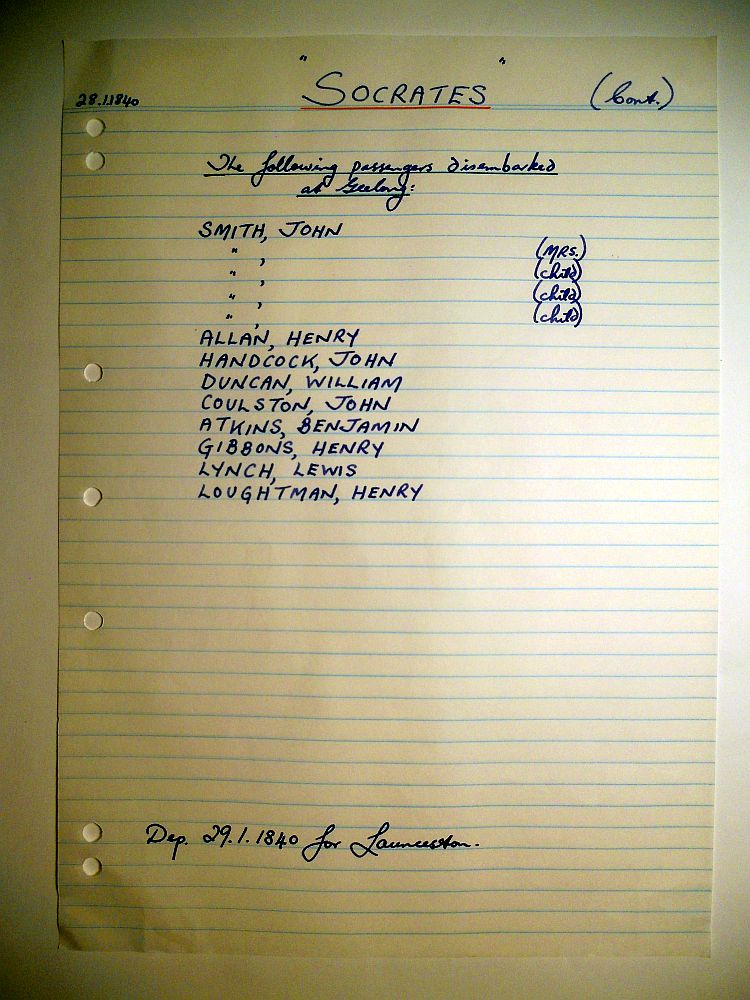 28.1.1840 "SOCRATES" (Cont.)
The following passengers disembarked
at Geelong:
SMITH, JOHN
" , (MRS.)
" , (child)
" , (child)
" , (child)
ALLAN, HENRY
HANDCOCK, JOHN
DUNCAN, WILLIAM
COULSTON, JOHN
ATKINS, BENJAMIN
GIBBONS, HENRY
LYNCH, LEWIS
LOUGHTMAN, HENRY
Dep. 29.1.1840 for Launceston.